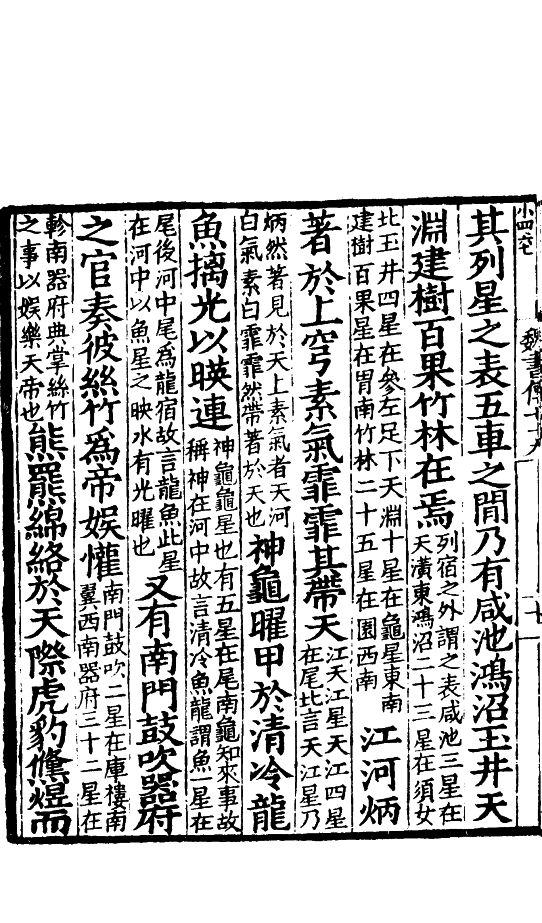 魏書傳七十九
其列星之表五車之間乃有咸池鴻沼玉井天
淵建樹百果竹林在焉
列宿之外謂之表咸池三星在
天潢東鴻沼二十三星在須女
北玉井四星在參左足下天淵十星在龜星東南
建樹百果星在胃南竹林二十五星在園西南
江河炳
著於上穹素氣霏霏其帶天
江天江星天江四星
在尾北言天江星乃
炳然著見於天上素氣者天河
白氣素白霏霏然帶著於天也
神龜曜甲於清冷龍
魚摛光以暎連
神龜龜星也有五星在尾南龜知來事故
稱神在河中故言清冷魚龍謂魚一星在
尾後河中尾爲龍宿故言龍魚此星
在河中以魚星之映水有光曜也
又有南門鼓吹器府
之官奏彼絲竹爲帝娛懽
南門鼓吹二星在庫樓南
翼西南器府三十二星在
軫南器府典掌絲竹
之事以娛樂天帝也
熊羆綿絡於天際虎豹儵煜而